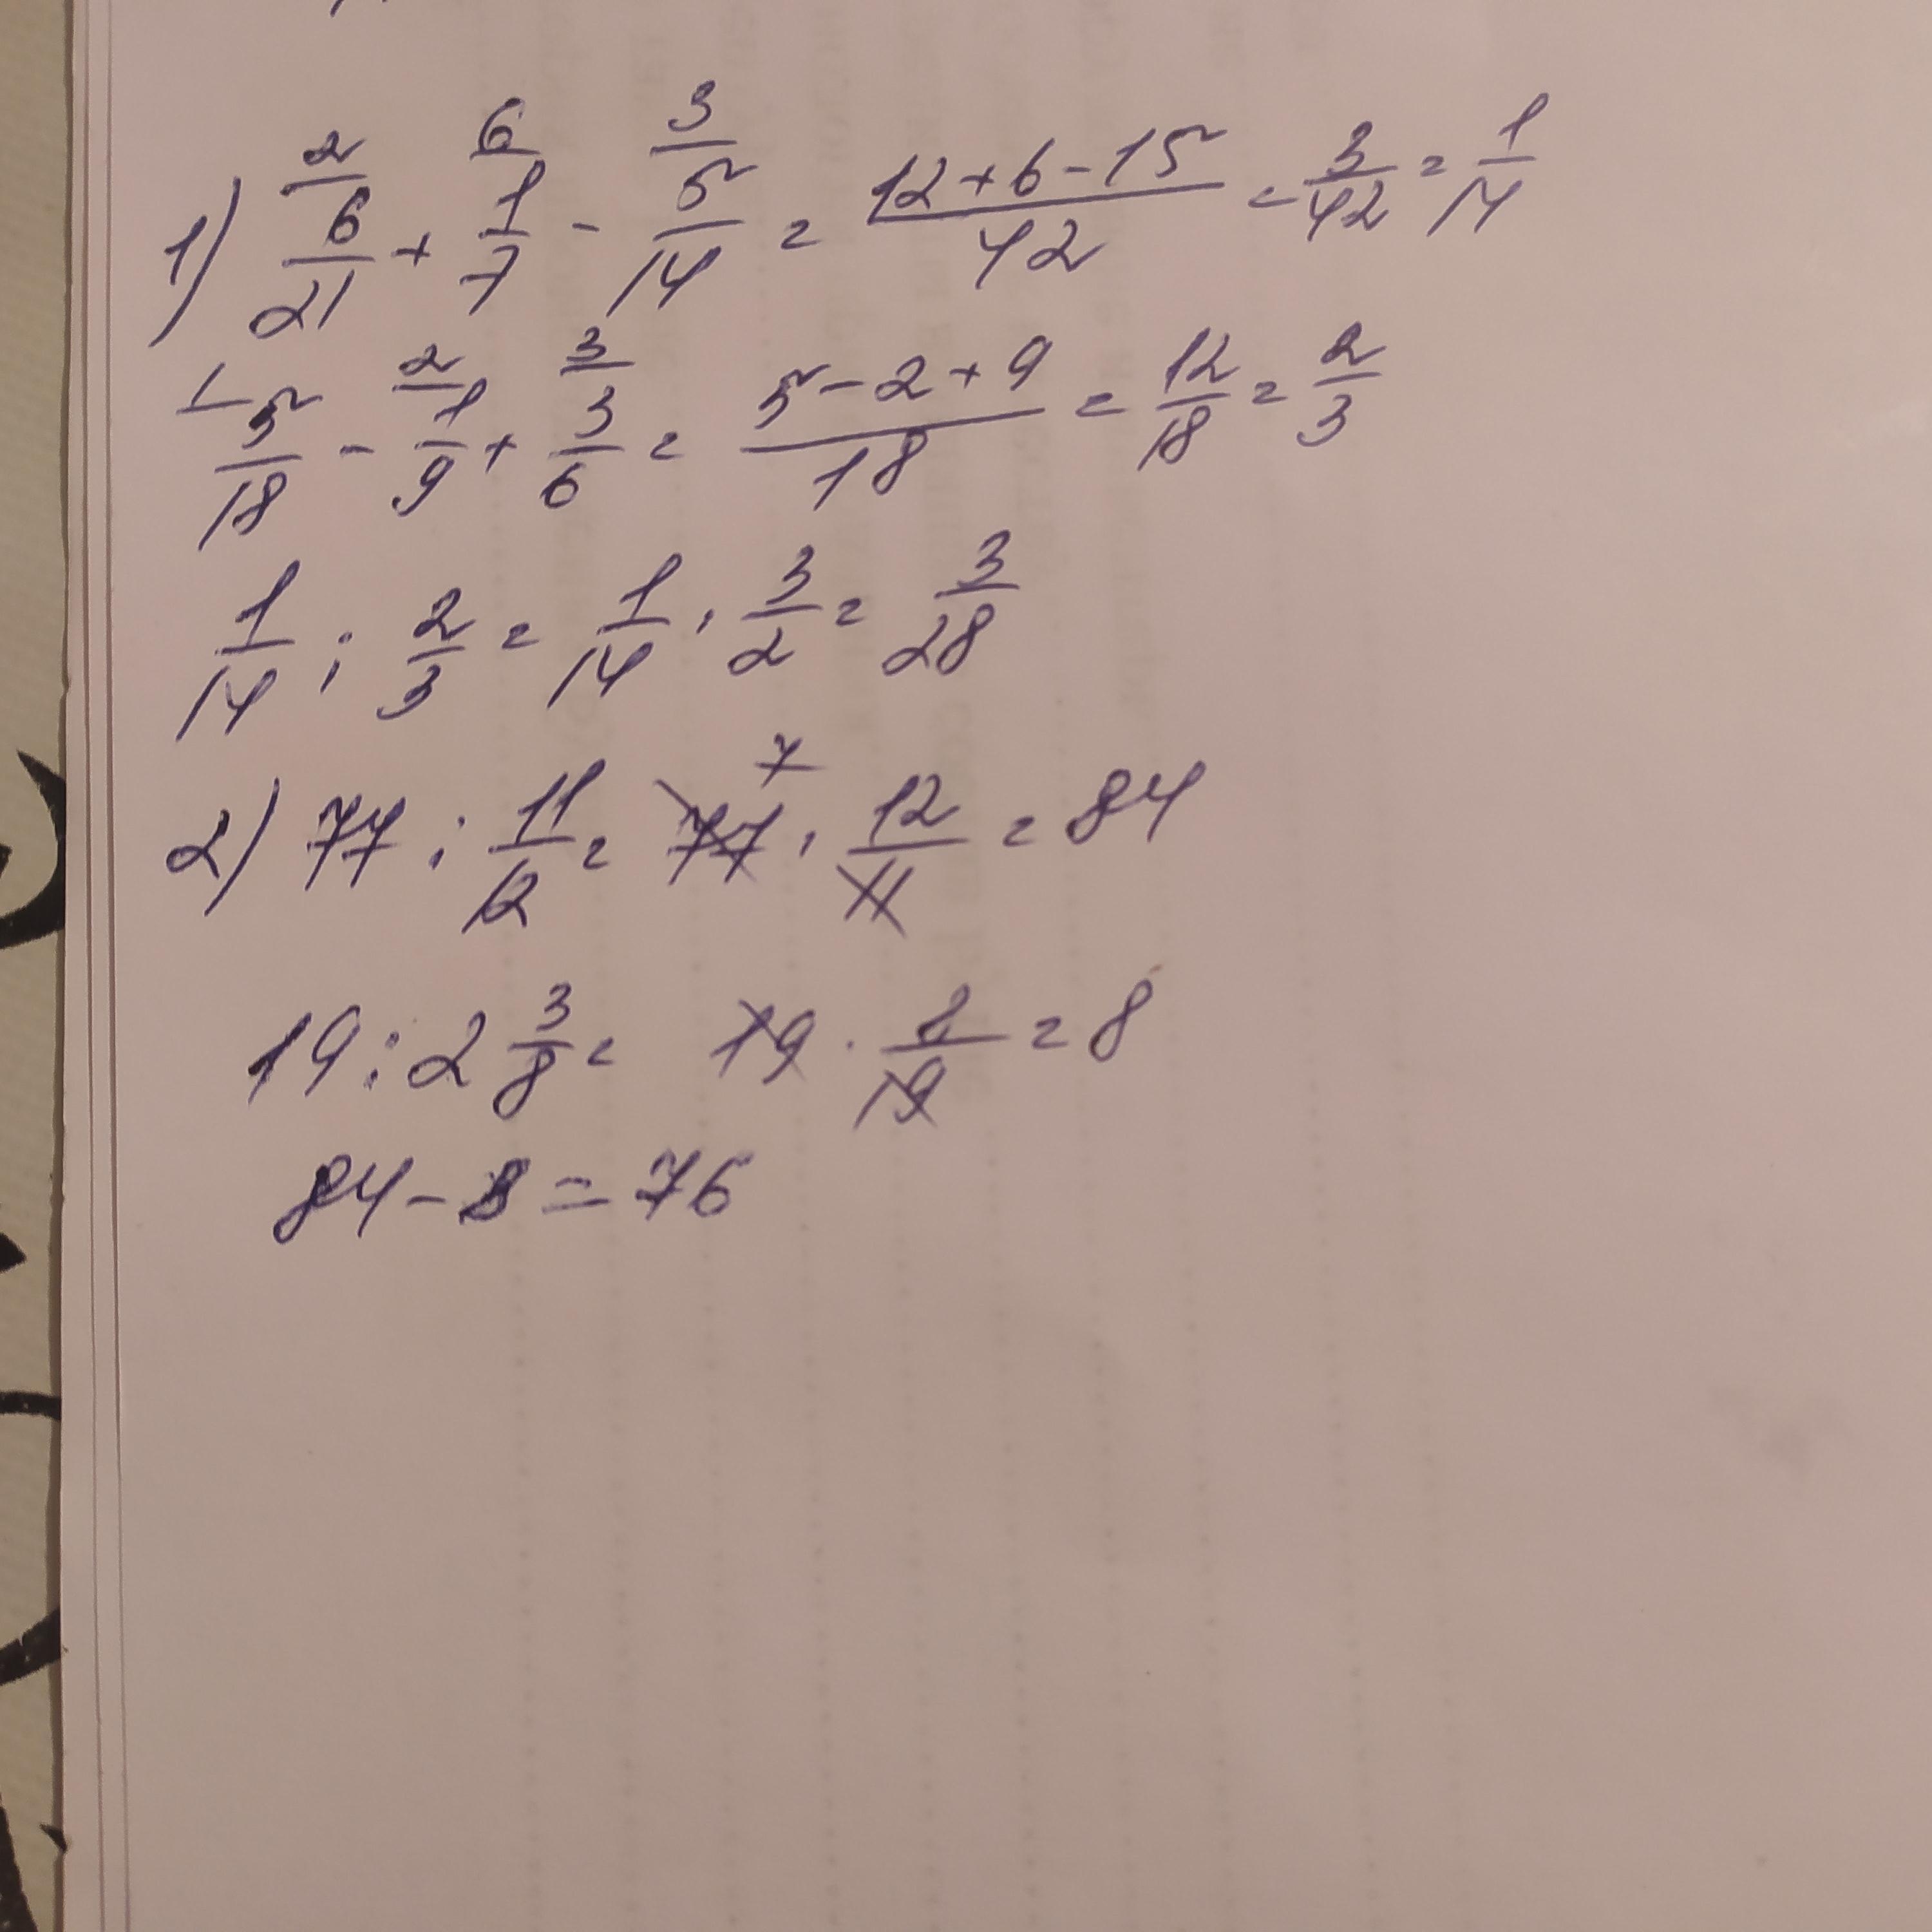 1) 2/ 6/21 + 6/ 1/7 - 3/ 5/14 = (12+6-15)/42 = 3/42 = 1/14
1/ 5/18 - 2/ 1/9 + 3/ 3/6 = (5-2+9)/18 = 12/18 = 2/3
1/14 : 2/3 = 1/14 · 3/2 = 3/28
2) 77 : 11/12 = 77 7 · 12/11 = 84
19 : 2 3/8 = 19 · 8/19 = 8
84 - 8 = 76